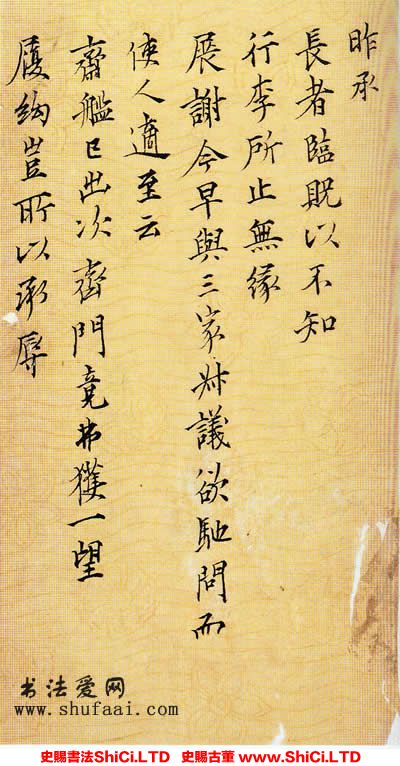 昨承
長者臨貺以不知
行李所止無緣
展謝今早與三家叔議欲馳問而
使人適至云
齋艦已出次齊門竟弗獲一望
履絇豈所以承辱
书法爱网
www.shufaai.com
史賜書法ShiCi.LTD 史賜古董 www.ShiCi.LTD